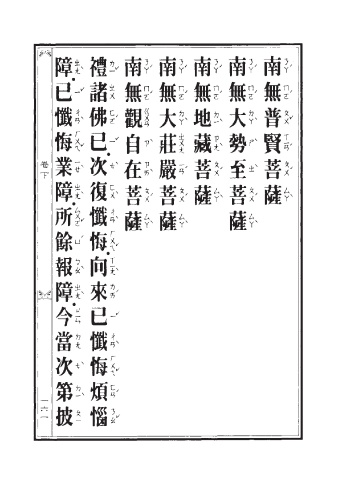 南無普賢菩薩
南無大勢至菩薩
南無地藏菩薩
南無大莊嚴菩薩
南無觀自在菩薩
禮諸佛已。次復懺悔。向來已懺悔煩惱
障。已懺悔業障。所餘報障。今當次第披
卷下
一六一